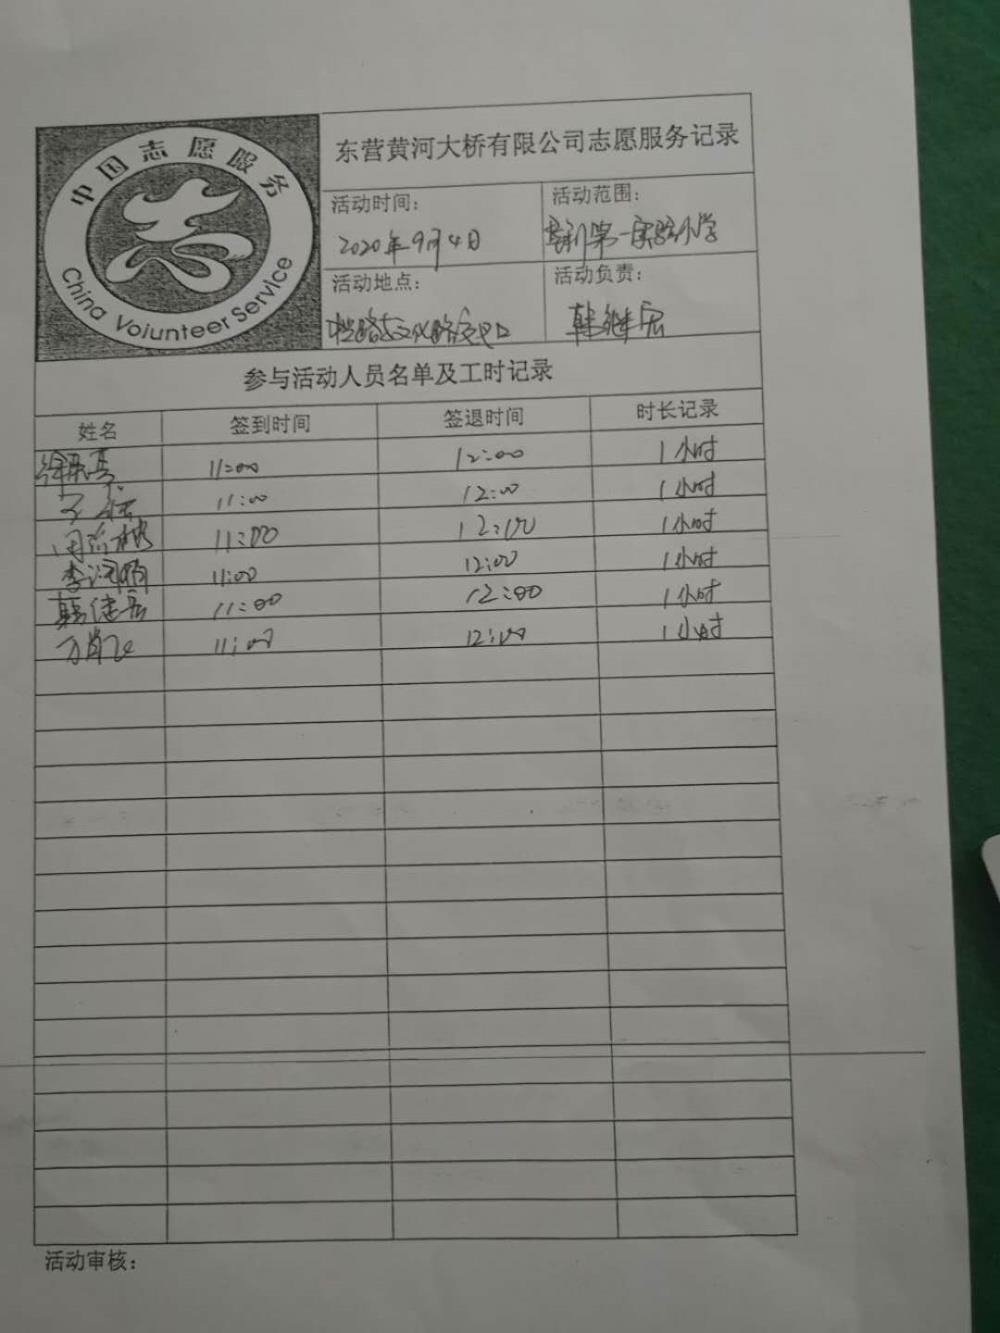 中国志愿服务
China Voiunteer Service
东营黄河大桥有限公司志愿服务记录
活动时间: 活动范围:
2020年9月4日 垦利第一实验小学
活动地点: 活动负责:
路与文化路交叉口 韩继宏
参与活动人员名单及工时记录
姓名 签到时间 签退时间 时长记录
11:00 12:00 1小时
11:00 12:00 1小时
11:00 12:00 1小时
11:00 12:00 1小时
11:00 12:00 1小时
11:00 12:00 1小时
活动审核: